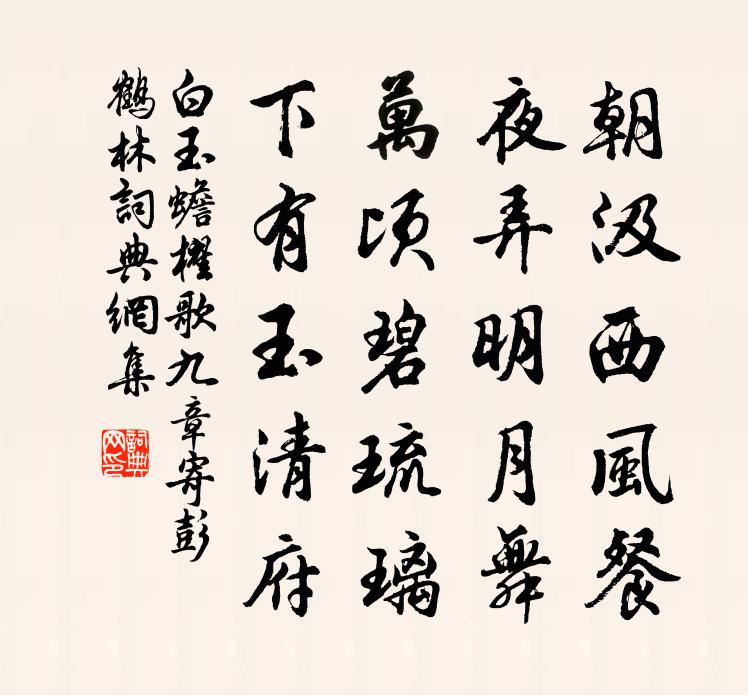 朝汲西風餐
夜弄明月舞
萬頃碧琉璃
下有玉清府
白玉蟾櫂歌九章寄彭
鶴林詞典網集
詞典
网印